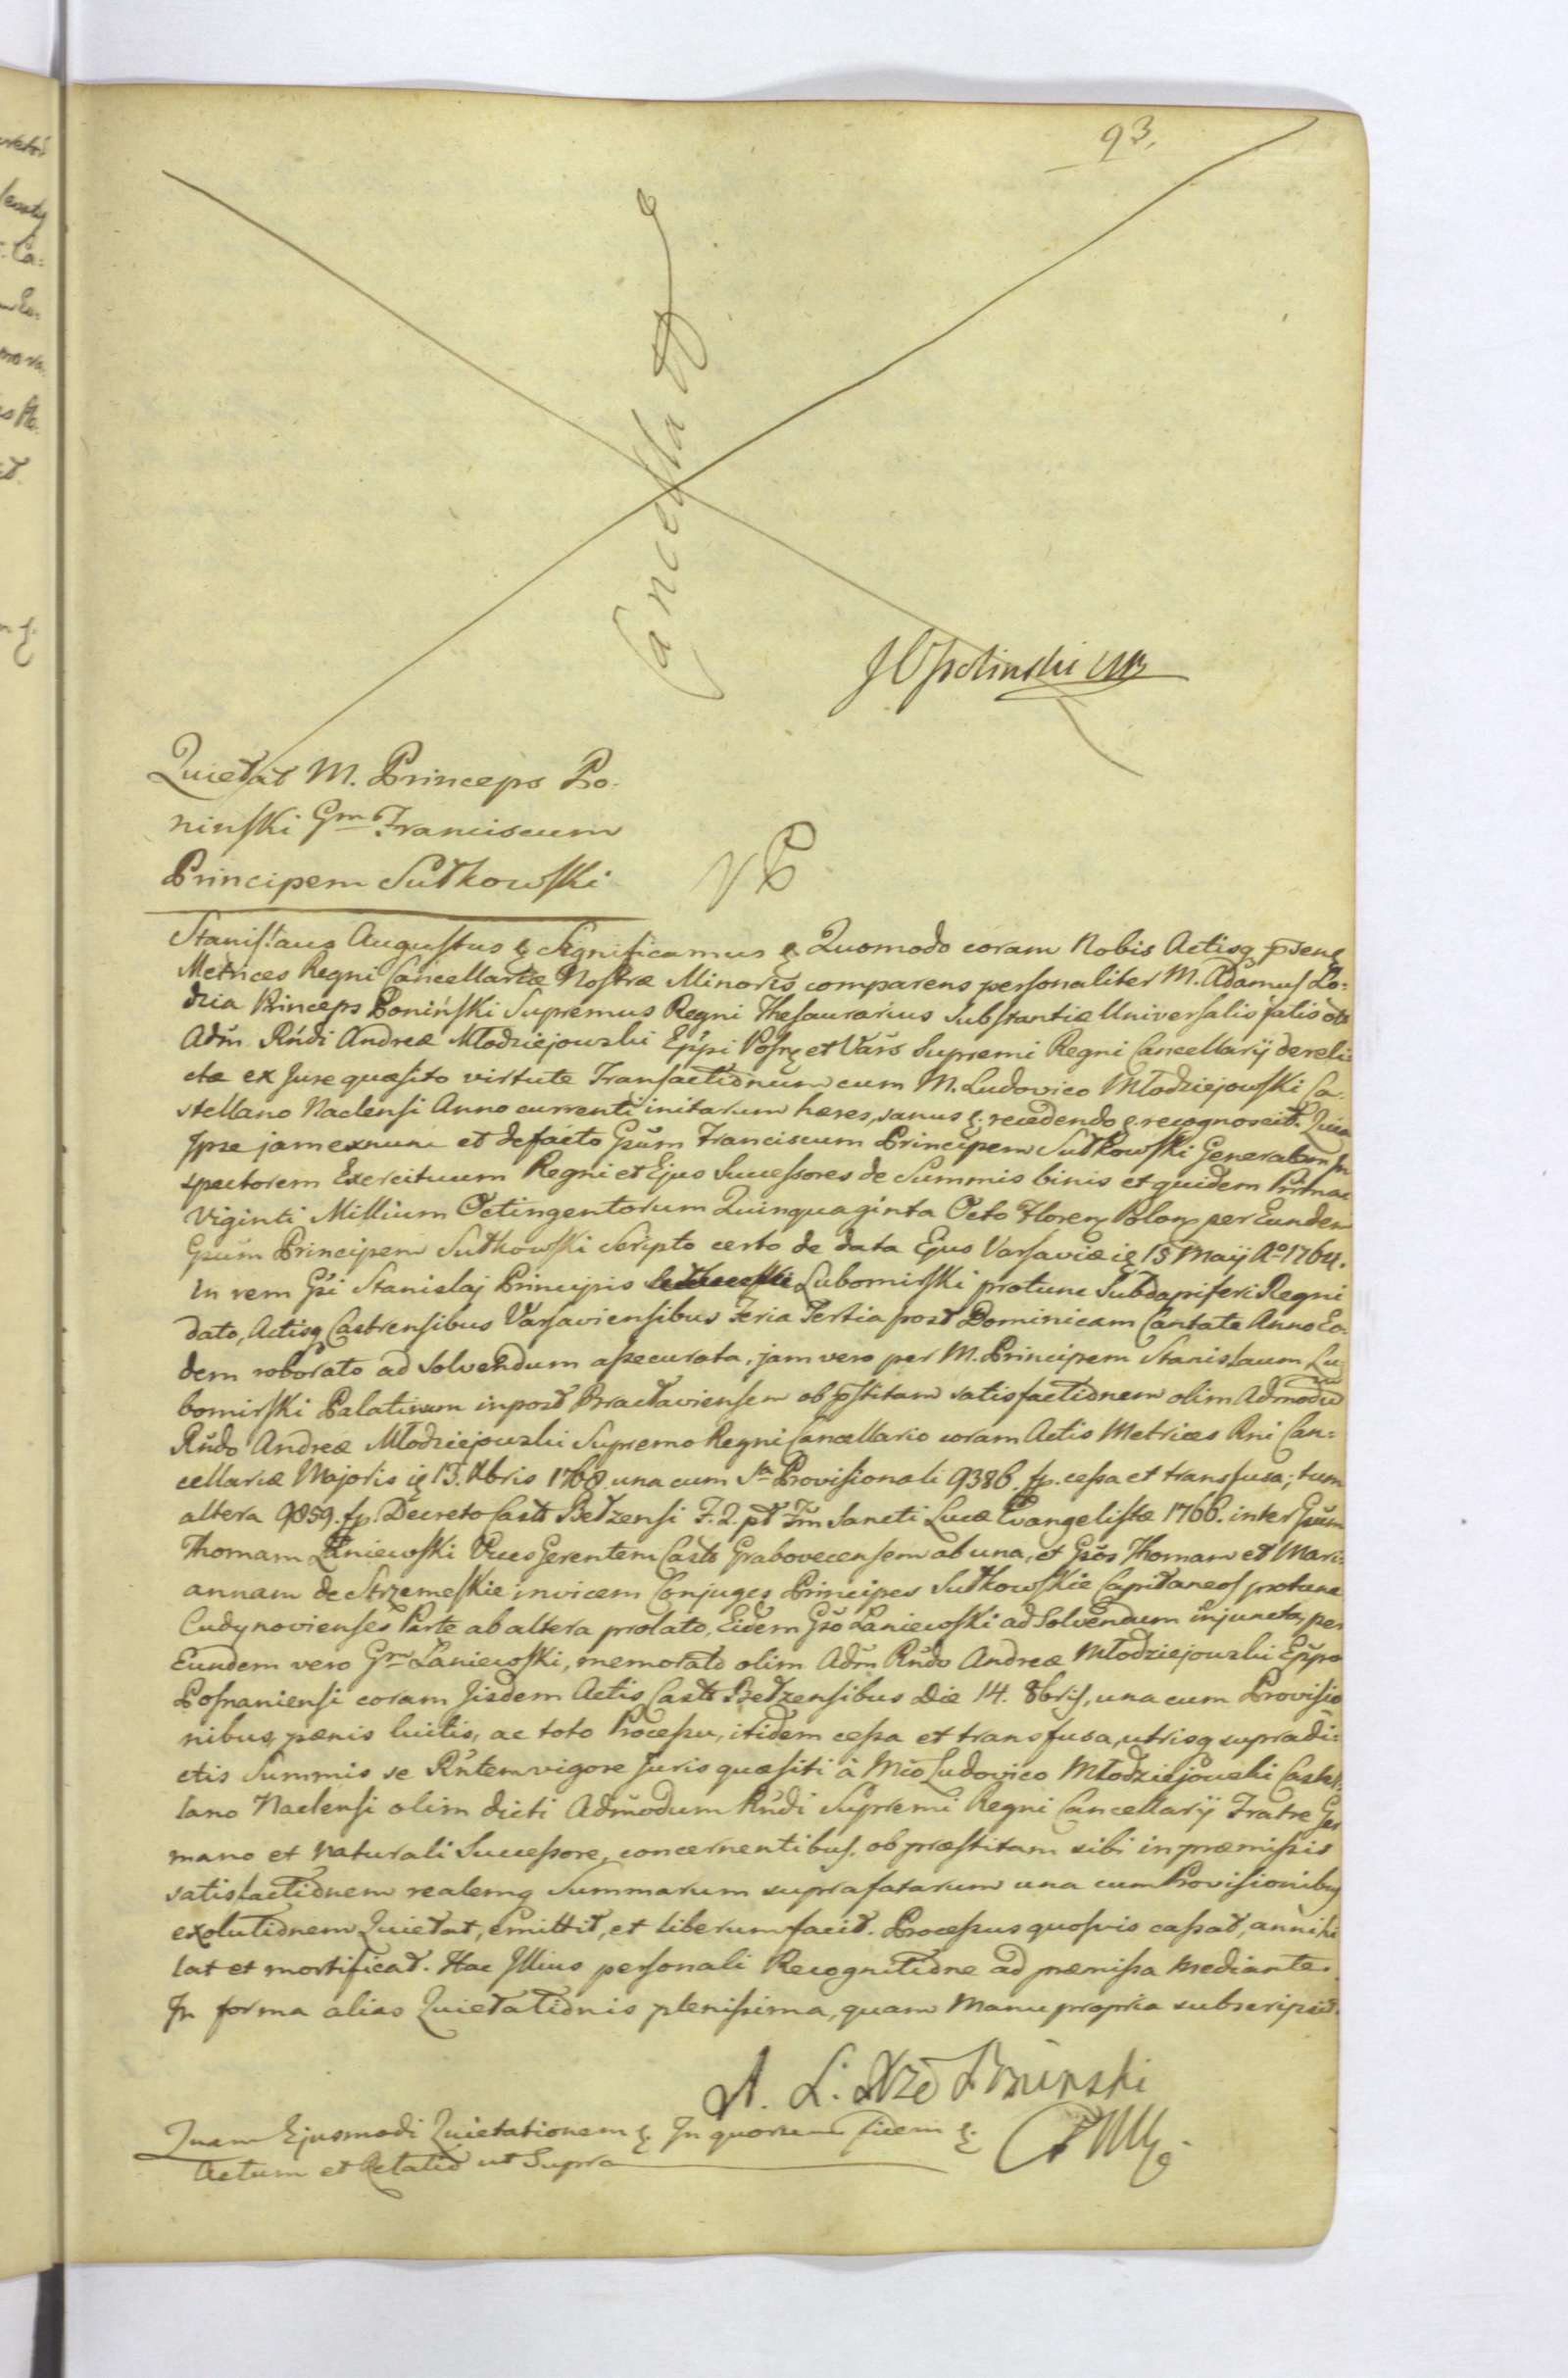 93.
Cancellat
Quietat M. Princeps Po-
ninski Gm Franciscum
Principem Sułkowski
Stanislaus Augustus Significamus Quomodo coram Nobis Actisq
Metrices Regni Cancellariæ Nostræ Minoris comparens personaliter M. Adamus Lo-
dzia Princeps Poniński Supremus Regni Thesaurarius Substantiæ Universalis fatis
Adm Rndi Andreæ Młodziejowski Eppi et Supremi Regni Cancellarij dereli-
ctæ ex Jure quæsito virtute Transactionum cum M. Ludovico Młodziejowski Ca-
stellano Naclensi Anno currenti initarum hæres, sanus recedendo recognoscit. Quia
Ipse jam exnunc et defacto Gsum Franciscum Principem Sułkowski Generalem In-
spectorem Exercituum Regni et Ejus Successores de Summis binis et quidem Prima
Viginti Millium Octingentorum Quinquaginta Octo Floren Polon per Eundem
Gsum Principem Sułkowski Scripto certo de data Ejus Varsaviæ 15 Maij Ao 1764.
In rem Gsi Stanislaj Principis Lubomirski protunc Subdapiferi Regni
dato, Actisq Castrensibus Varsaviensibus Feria Tertia post Dominicam Cantate Anno Eo-
dem roborato ad solvendum assecurata, jam vero per M. Principem Stanislaum Lu-
bomirski Palatinum inpost Bracłaviensem ob pstitam satisfactionem olim Admodu
Rndo Andreæ Młodziejowski Supremo Regni Cancellario coram Actis Metrices Rni Can-
cellariæ Majoris 13. Xbris 1768. una cum Provisionali 9386. fp. cessa et transfusa; tum
altera 9859. fp. Decreto Casts Bełzensi F. 2. pt Fm Sancti Lucæ Evangelistæ 1766. inter Gsum
Thomam Łaniewski Vices Gerentem Casts Grabovecensem ab una, et Gsos Thomam et Mari-
annam de Strzemeskie invicem Conjuges Principes Sułkowskie Capitaneos protunc
Cudynovienses Parte ab altera prolato, Eidem Gso Łaniewski ad Solvendum injuncta, per
Eundem vero Gm Łaniewski, memorato olim Adm Rndo Andreæ Młodziejowski Eppo
Posnaniensi coram Iisdem Actis Casts Bełzensibus Die 14. 8bris, una cum Provisio-
nibus, pænis luitis, ac toto Processu, itidem cessa et transfusa, utrisq supradi-
ctis Summis se Rntem vigore Juris quæsiti à Mco Ludovico Młodziejowski Castel-
lano Naclensi olim dicti Admodum Rndi Supremi Regni Cancellarij Fratre Ger
mano et Naturali Successore, concernentibus, ob præstitam sibi in præmissis
satisfactionem realemq Summarum suprafatarum una cum Provisionibus
exolutionem Quietat, emittit, et liberum facit. Processus quosvis cassat, annihi
lat et mortificat. Hac Illius personali Recognitione ad præmissa mediante.
In forma alias Quietationis plenissima, quam Manu propria subscripsit.
A. L. Poninski
Quam Ejusmodi Quietationem In quorum fidem
Actum et Relatio ut Supra